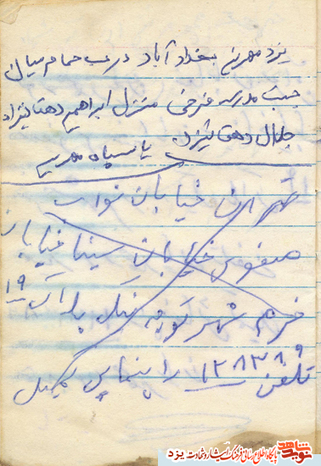 یزد مهریز بغداد آباد درب حمام میان
جنب مدرسه فرخی منزل ابراهیم دهقانیزاد
جلال دهقانیزاد
یا سپاه مهریز
تهران خیابان نواب
خیابان سینا خیابان
خرم شهر کوچه پلاک ۱۹
تلفن ۱۲۸۳۸۹ راهنمایی
نوید شاهد
پایگاه اطلاع رسانی فرهنگ ایثار و شهادت یزد